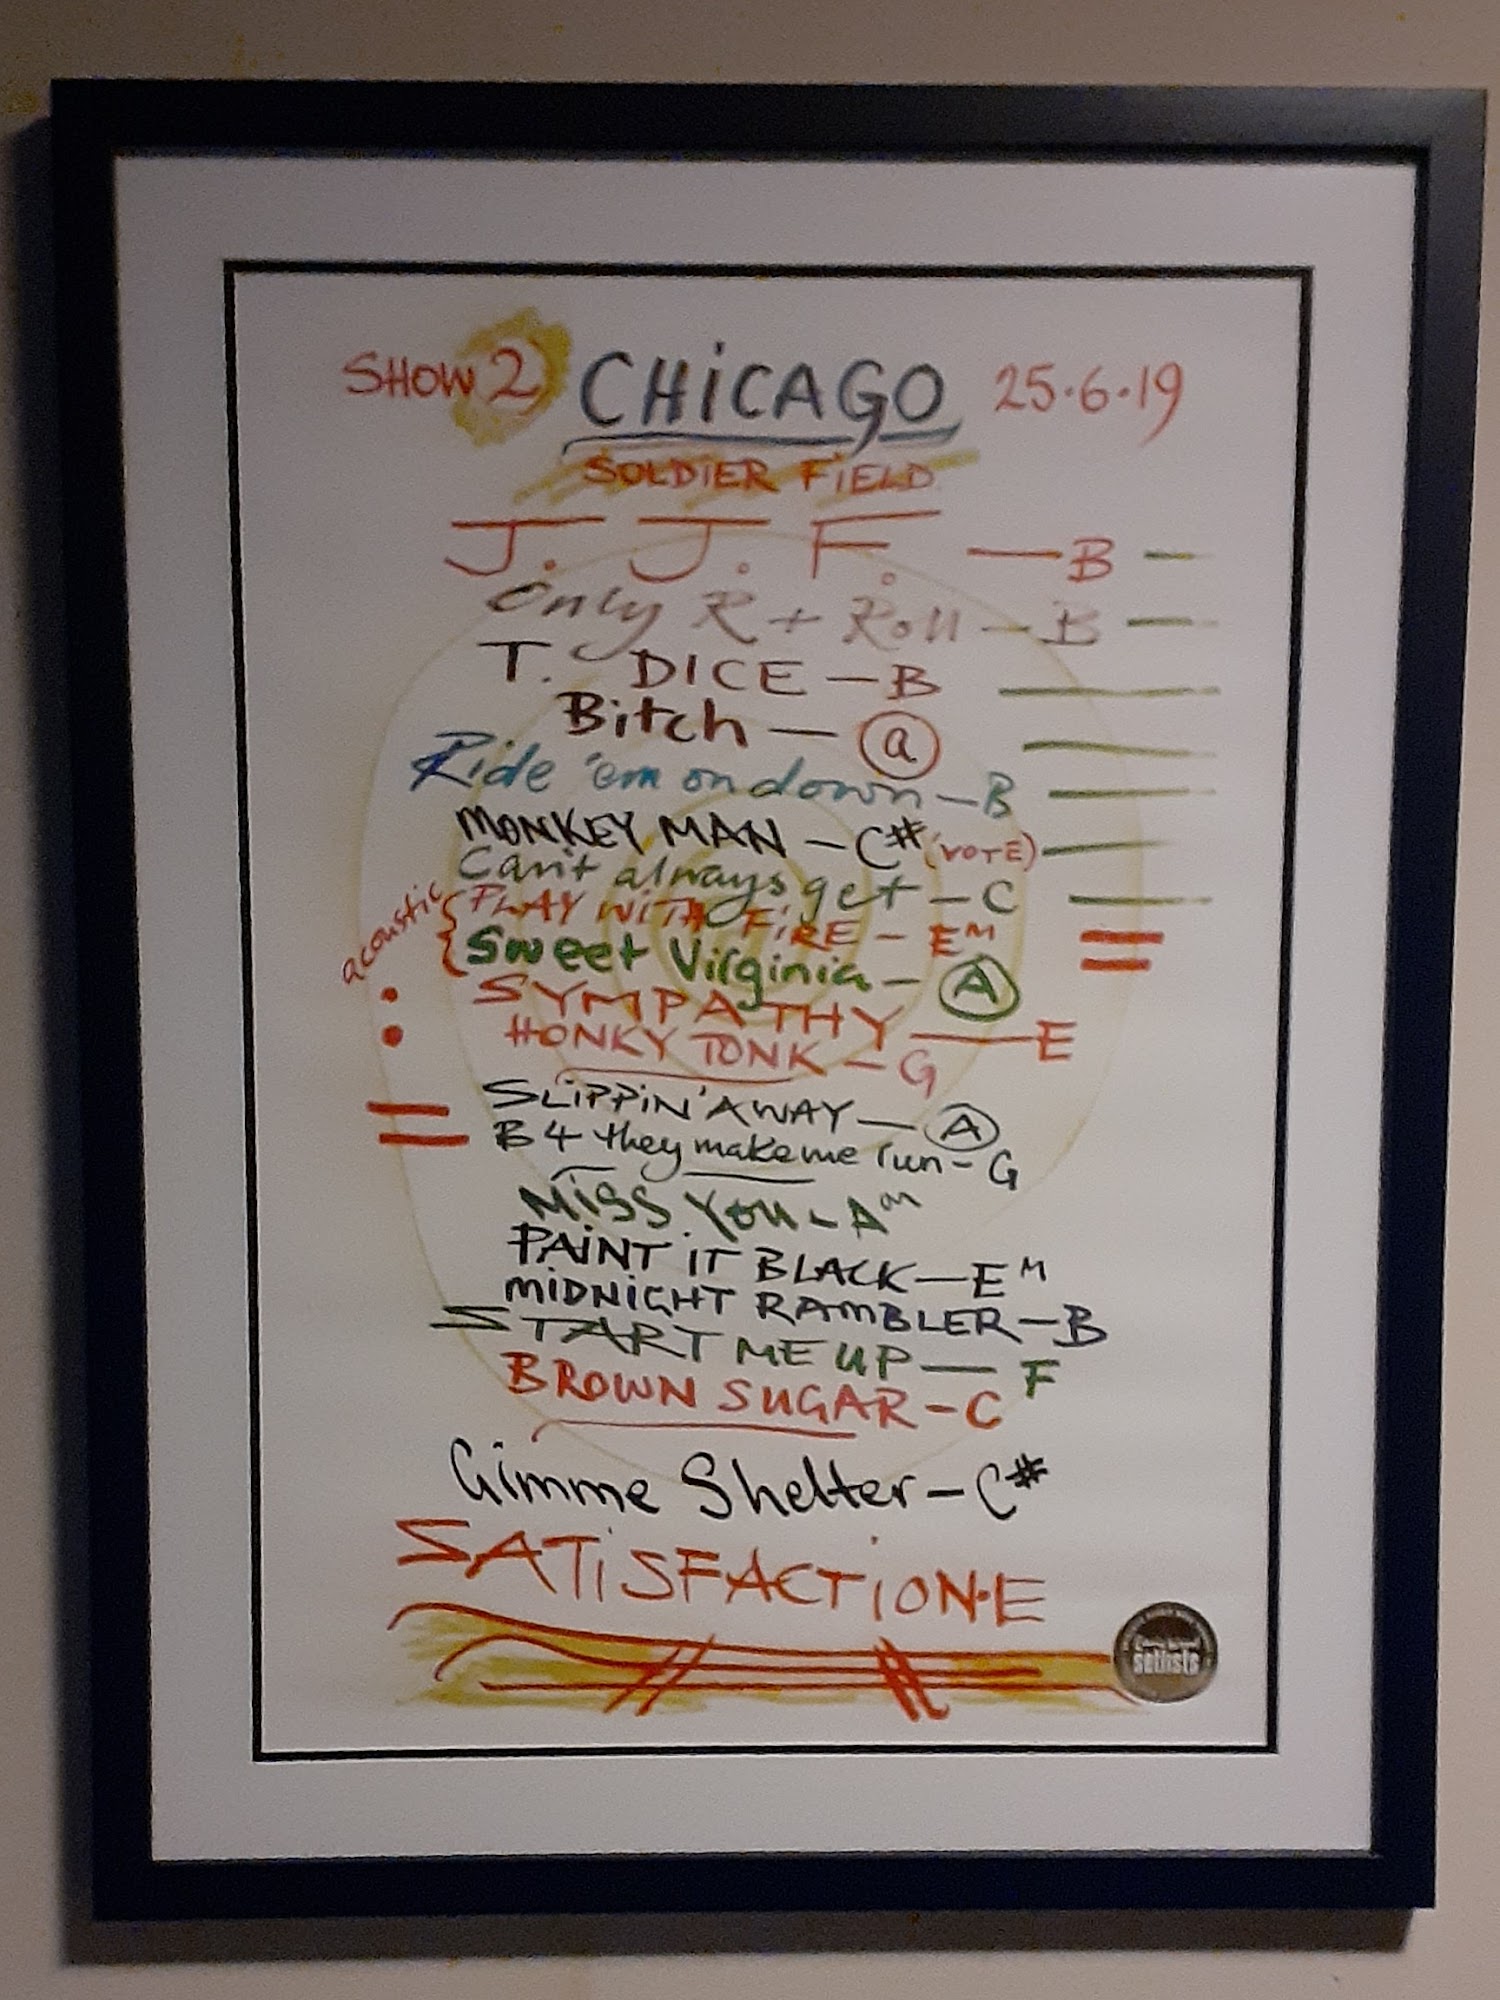 SHOW 2 CHiCAGO 25.6.19
SOLDIER FiELD
J. J. F. — B —
Only R + Roll — B —
T. DICE — B
Bitch — a
Ride 'em on down — B
MONKEY MAN — C# (VOTE)
Can't always get — C
acoustic
PLAY WITH FiRE — EM
Sweet Virginia — A
SYMPATHY — E
HONKY TONK — G
SLiPPiN' AWAY — A
B4 they make me run — G
MiSS YOU — Am
PAiNT iT BLACK — EM
MiDNiGHT RAMBLER — B
START ME UP — F
BROWN SUGAR — C
Gimme Shelter — C#
SATiSFACTiON · E
setlists